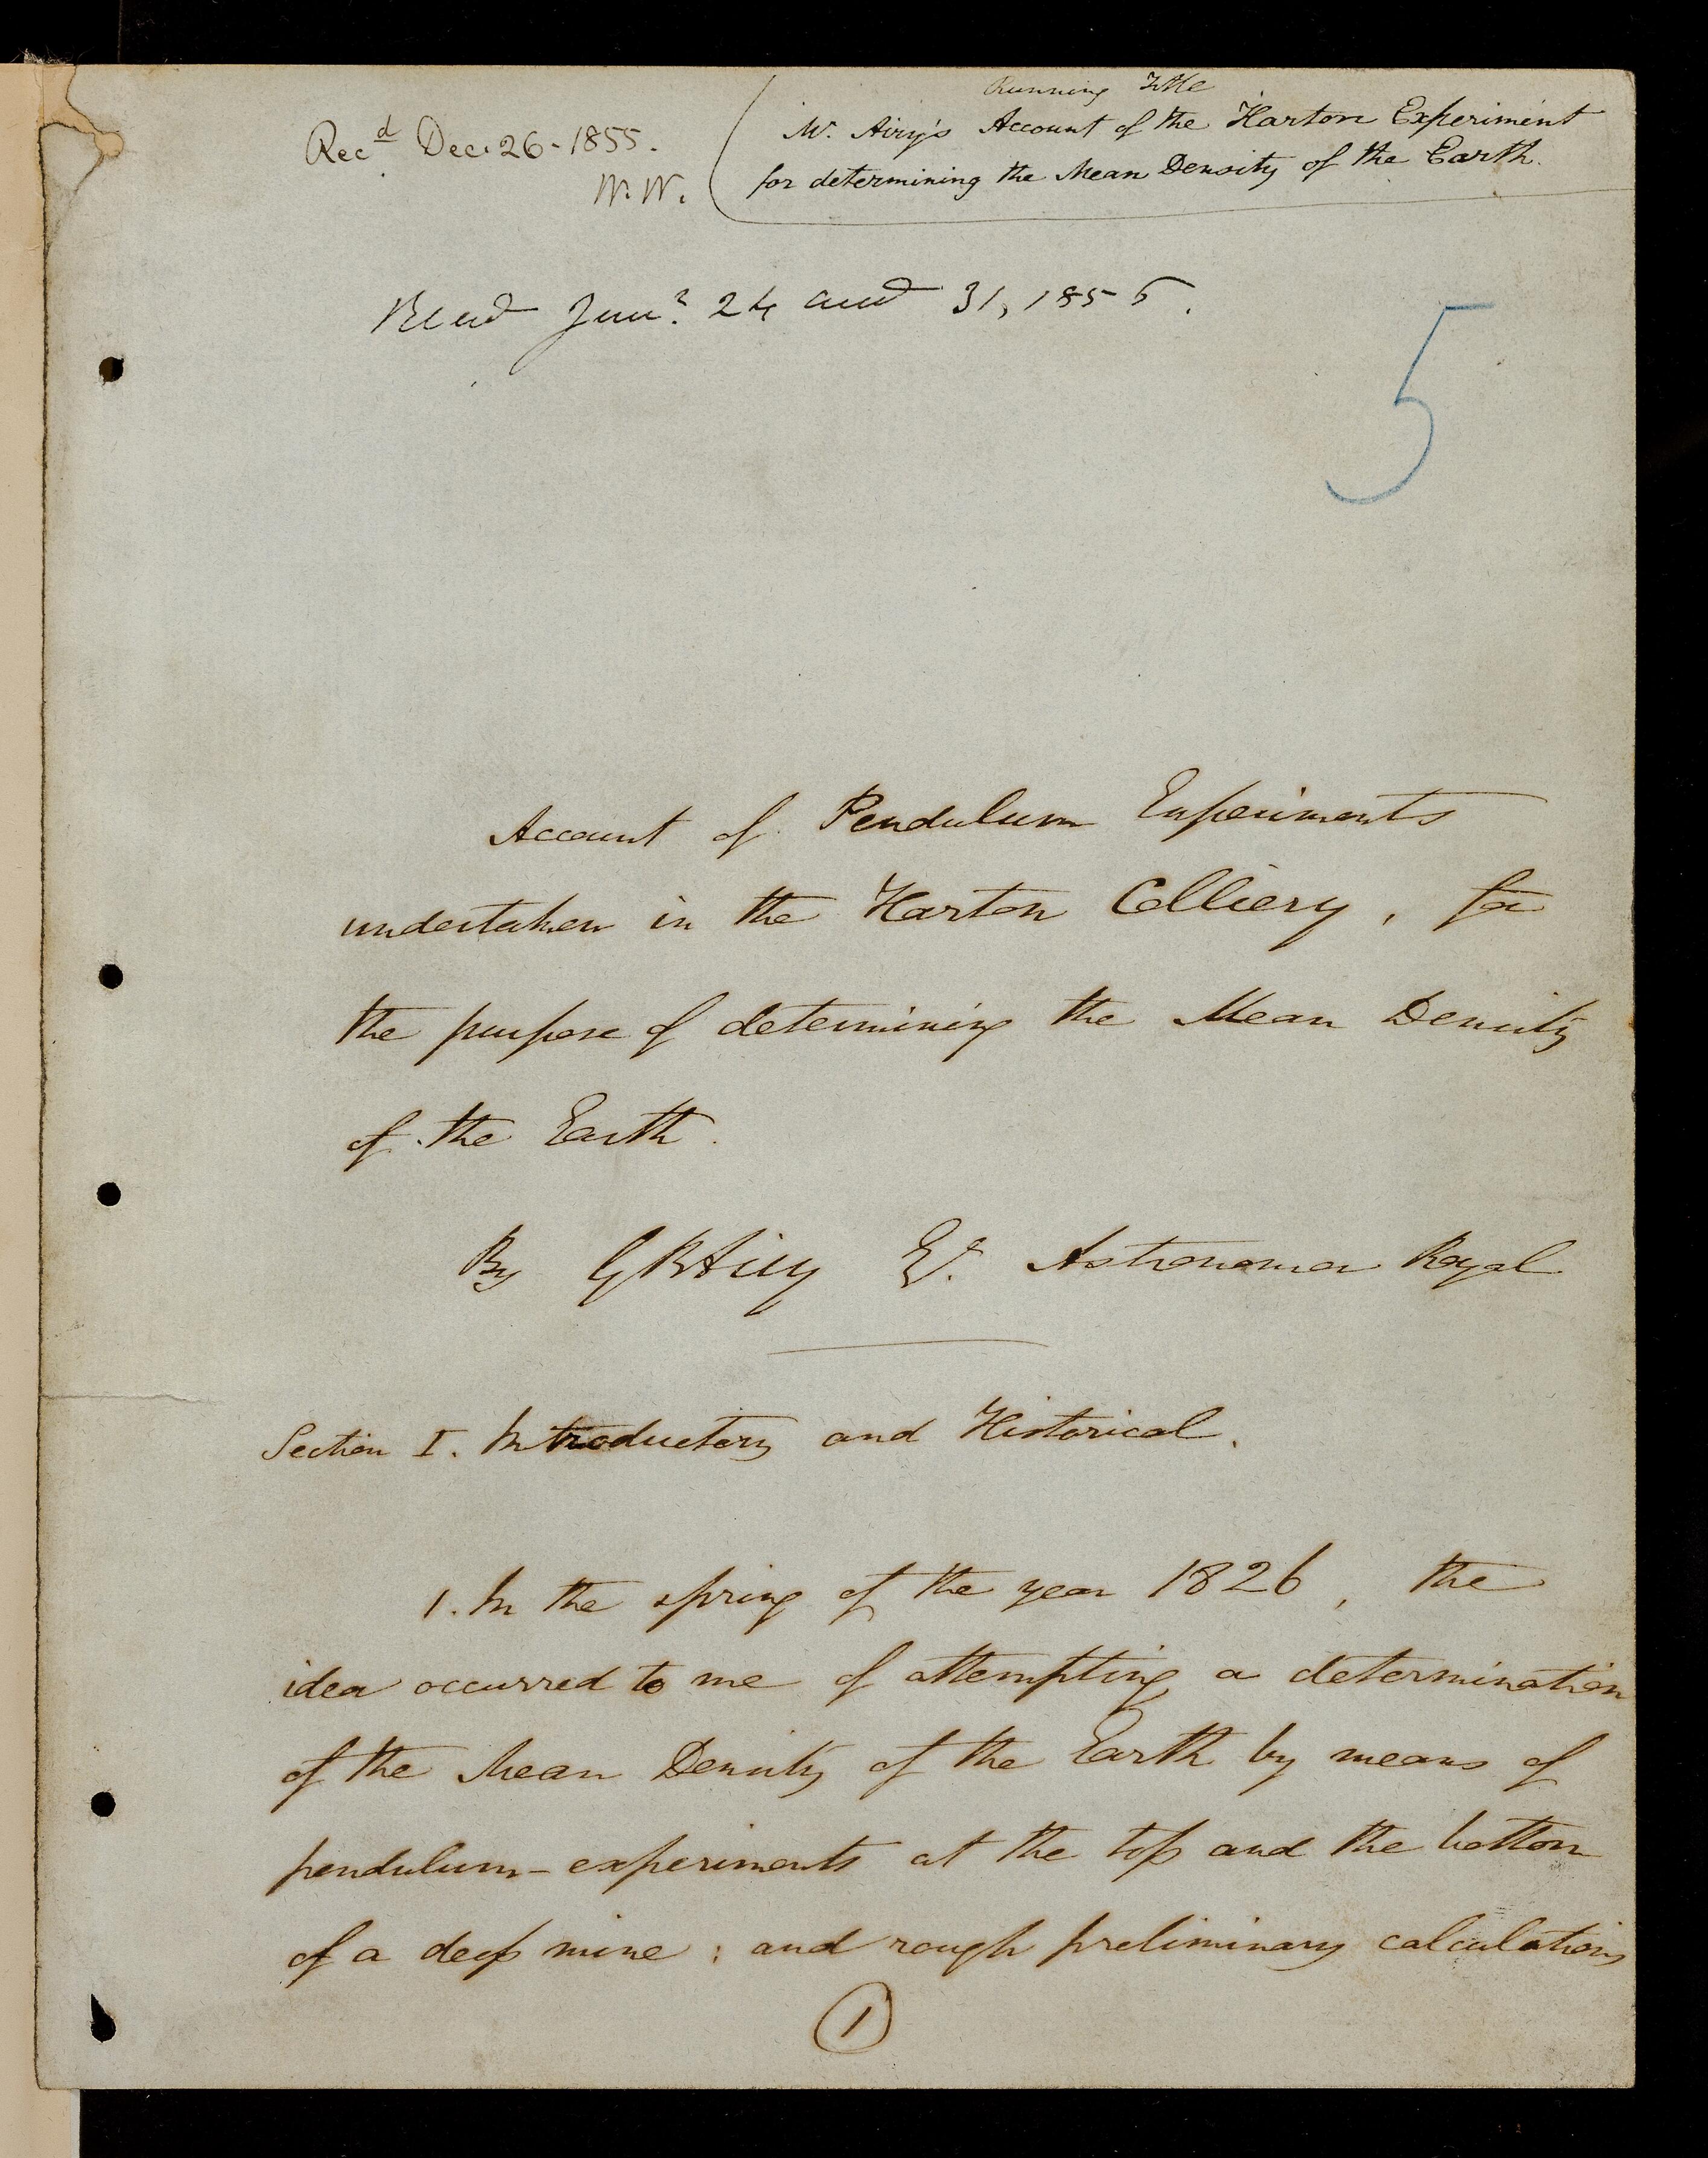 Running Title
Mr. Airy's Account of the Harton Experiment
for determining the Mean Density of the Earth.
Recd Dec. 26 - 1855.
W.W.
Read Jany. 24 and 31, 1856.
5
Account of Pendulum Experiments
undertaken in the Harton Colliery, for
the purpose of determining the Mean Density
of the Earth.
By G B Airy Esq. Astronomer Royal
Section I. Introductory and Historical.
1. In the spring of the year 1826, the
idea occurred to me of attempting a determination
of the Mean Density of the Earth by means of
pendulum-experiments at the top and the bottom
of a deep mine; and rough preliminary calculations
1